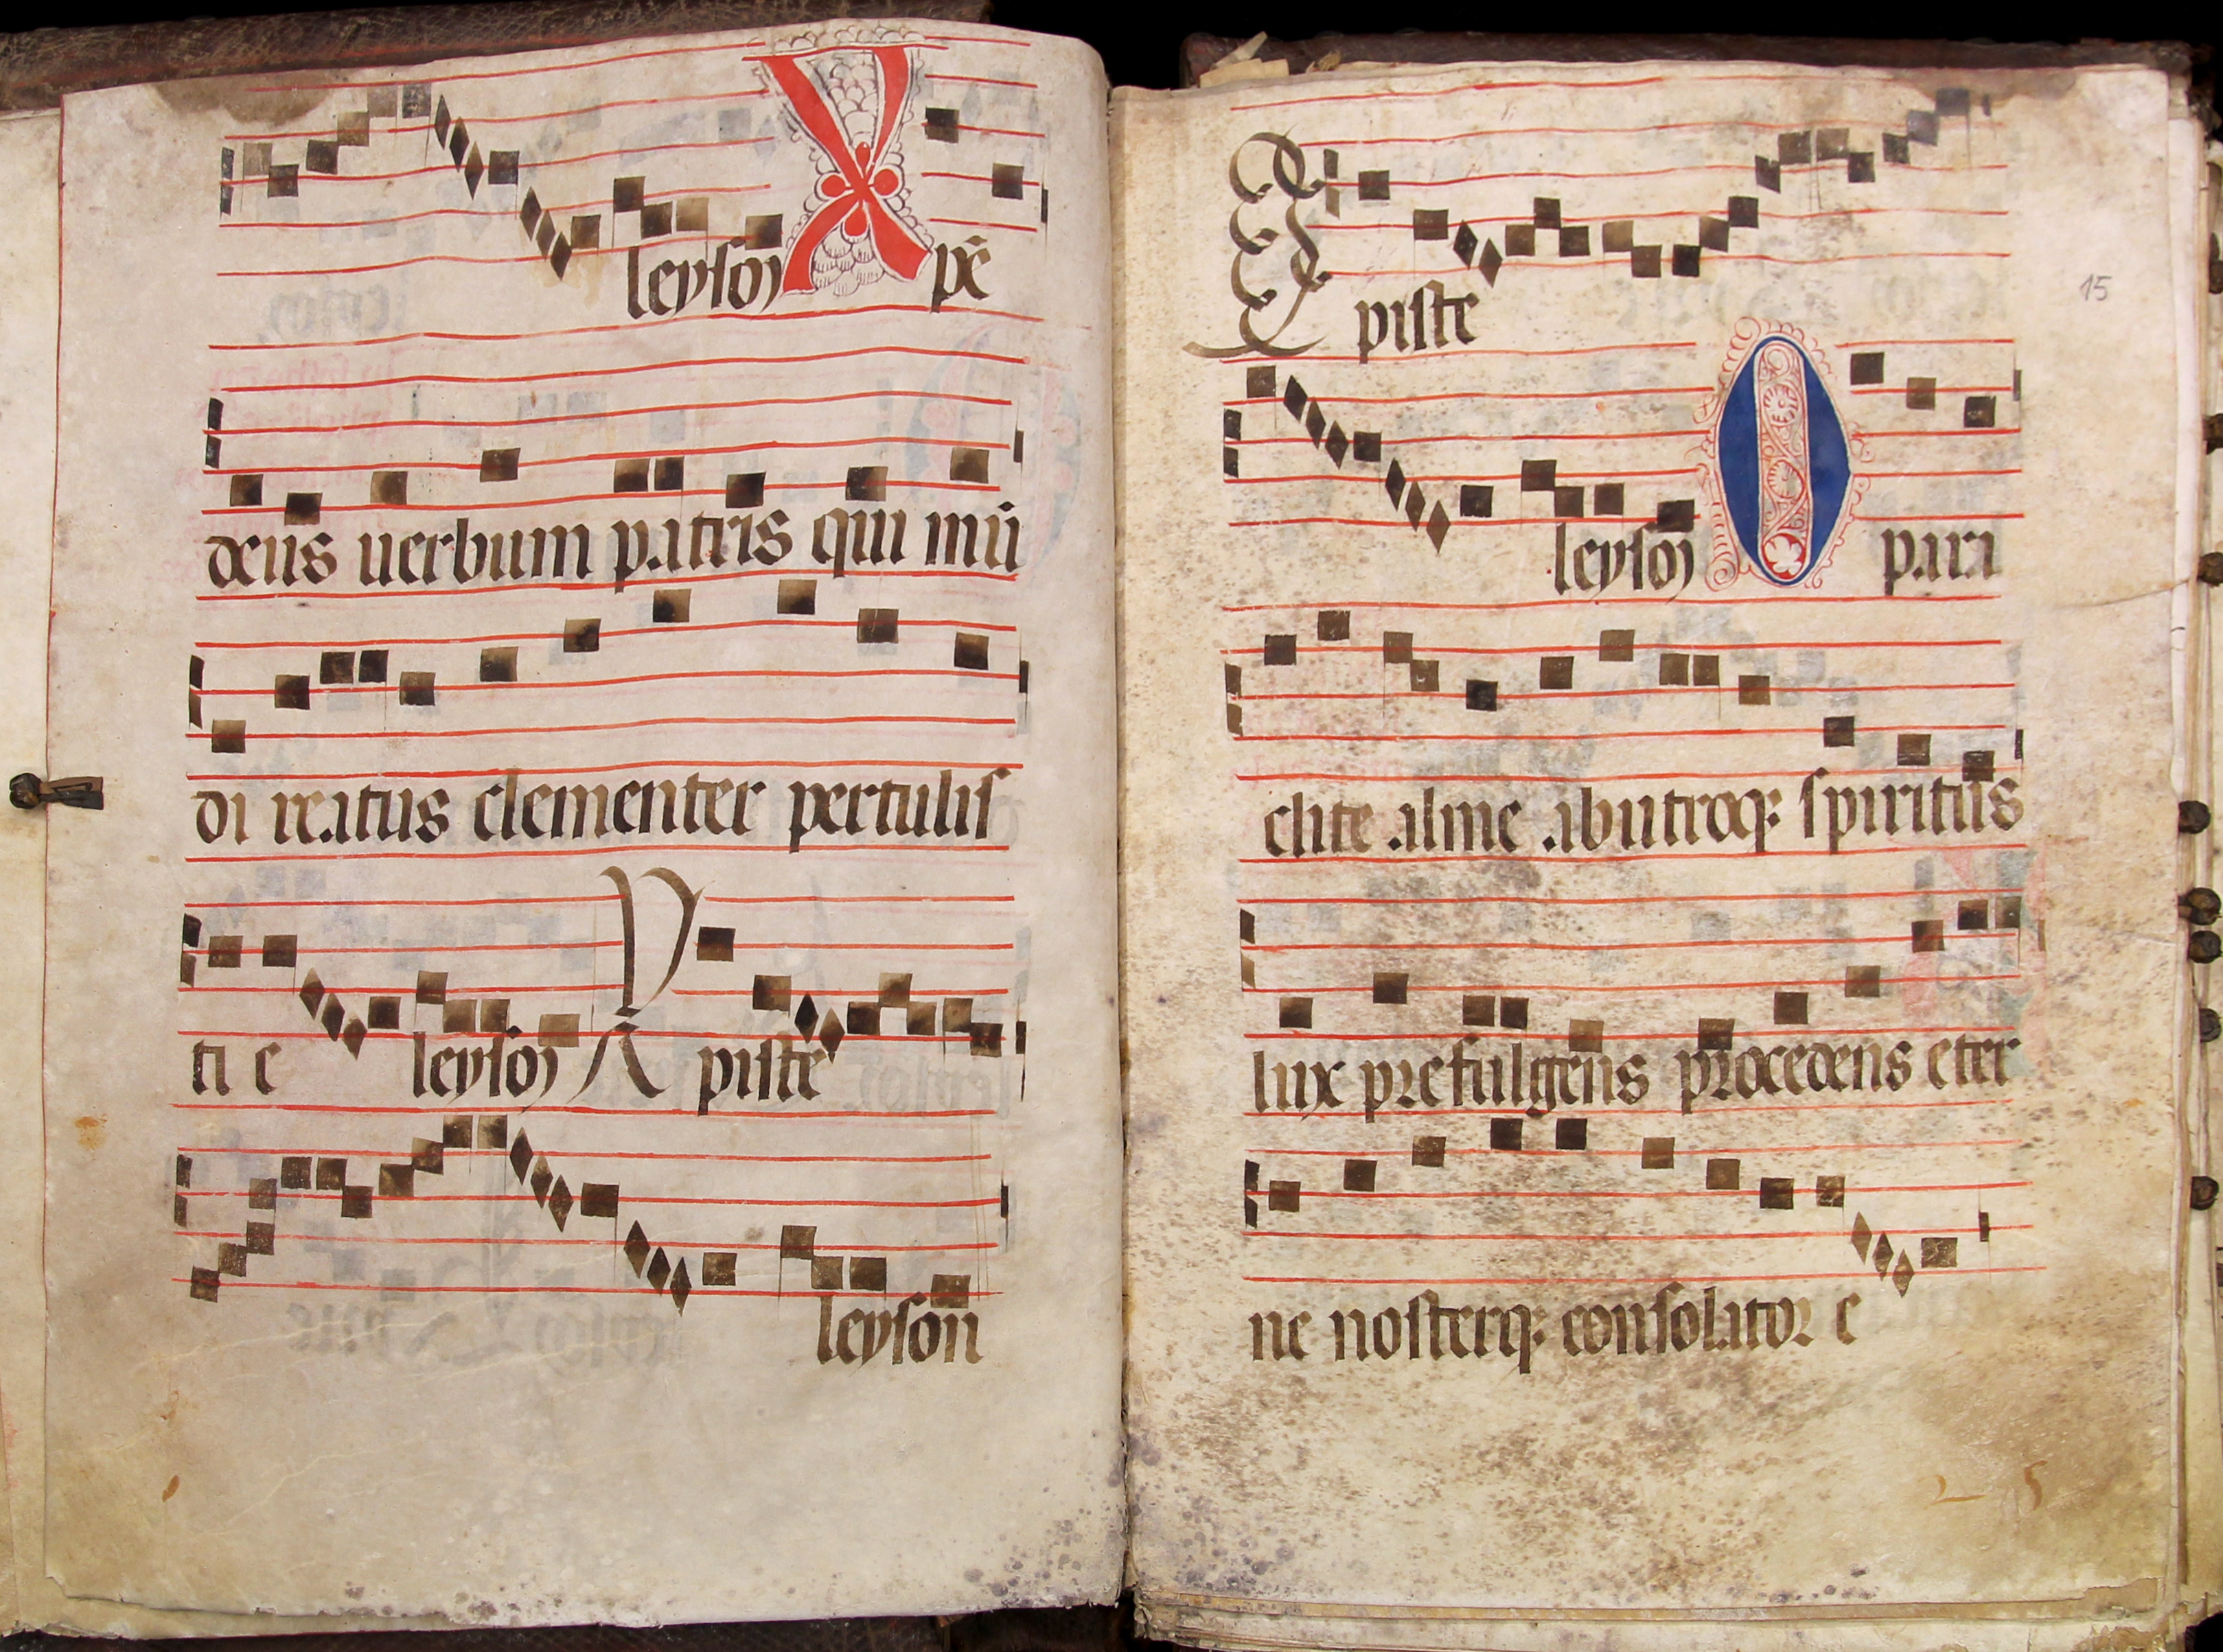 leyson Xpē
deus uerbum patris qui mū
di reatus clementer pertulis
ti e leyson Xpiste
leyson
Xpiste
15
leyson O para
clite alme ab utroq; spiritus
lux prefulgens procedens eter
ne nosterq; consolator e
25